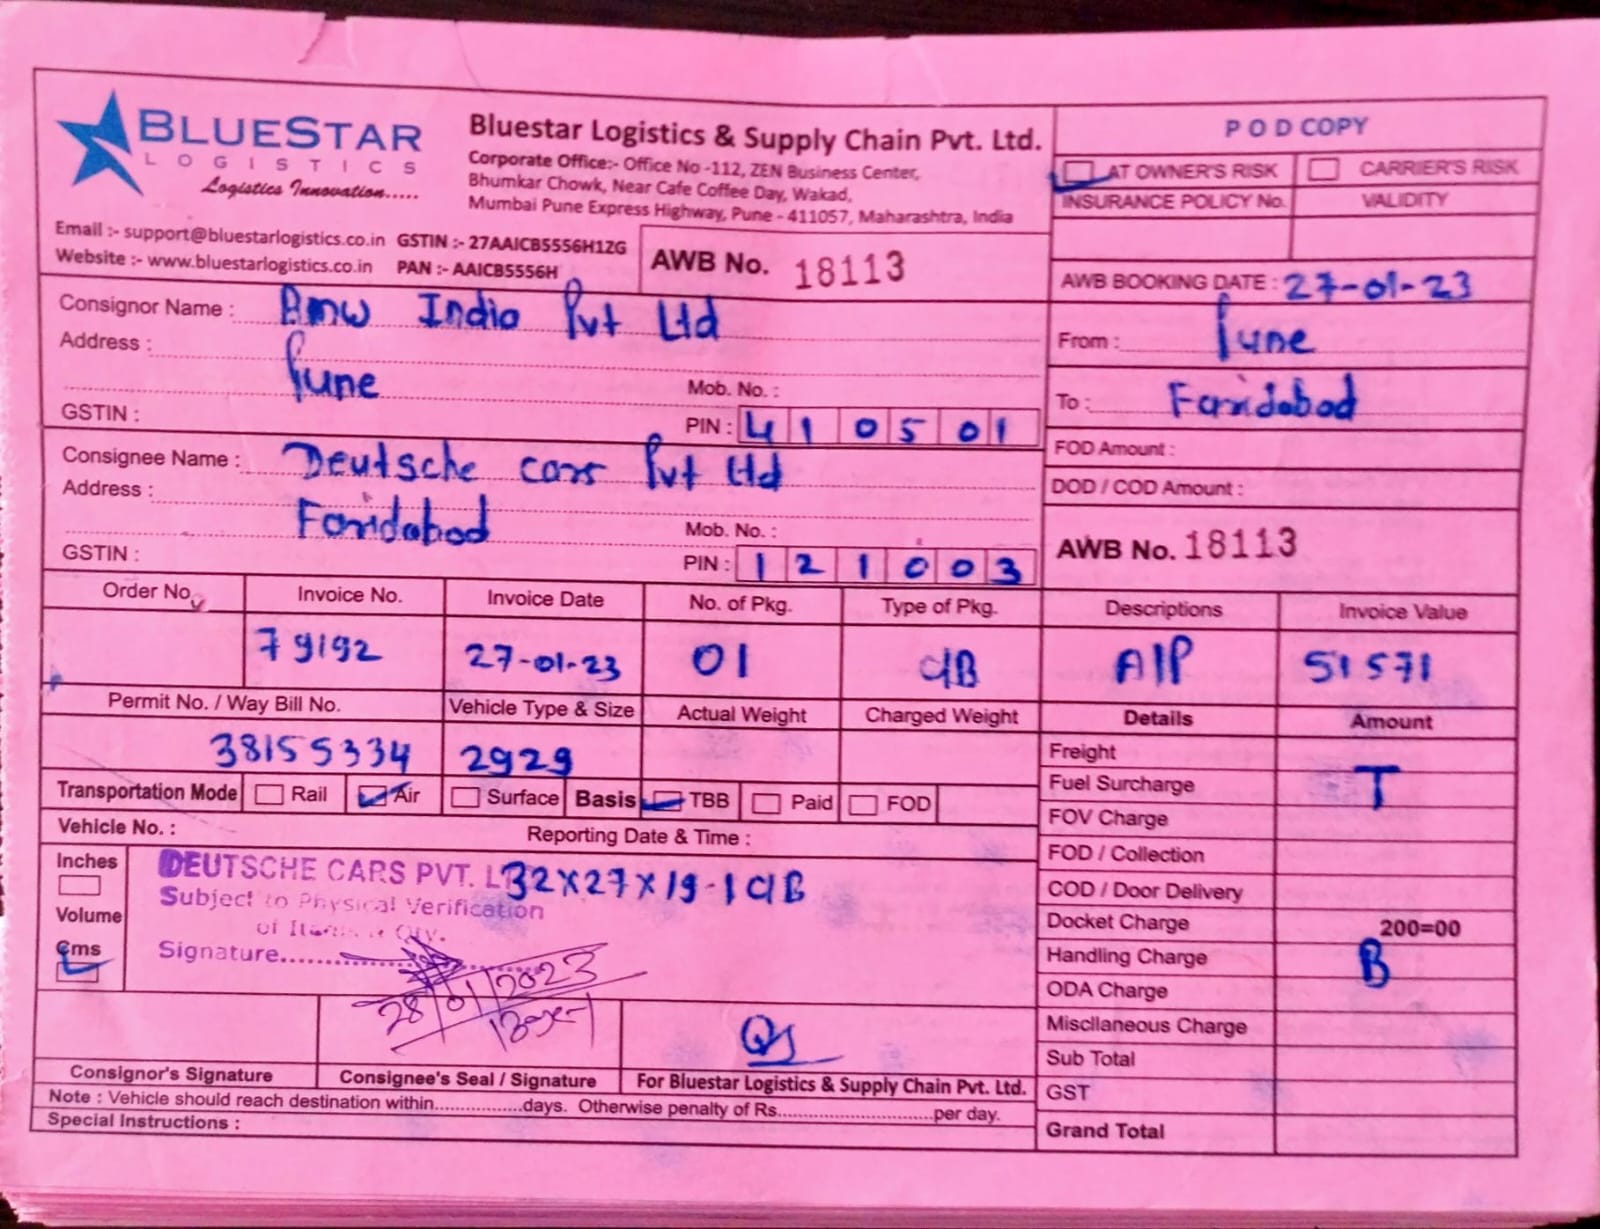 BLUESTAR
LOGISTICS
Logistics Innovation.....
Bluestar Logistics & Supply Chain Pvt. Ltd.
Corporate Office:- Office No -112, ZEN Business Center,
Bhumkar Chowk, Near Cafe Coffee Day, Wakad,
Mumbai Pune Express Highway, Pune - 411057, Maharashtra, India
Email :- support@bluestarlogistics.co.in GSTIN :- 27AAICB5556H1ZG
Website :- www.bluestarlogistics.co.in PAN :- AAICB5556H
AWB No. 18113
POD COPY
AT OWNER'S RISK CARRIER'S RISK
INSURANCE POLICY No. VALIDITY
AWB BOOKING DATE : 27-01-23
Consignor Name : Bmw India Pvt Ltd
Address : Pune
Mob. No. :
GSTIN : PIN : 410501
From : Pune
To : Faridabad
FOD Amount :
DOD / COD Amount :
AWB No. 18113
Consignee Name : Deutsche cars Pvt Ltd
Address : Faridabad
Mob. No. :
GSTIN : PIN : 121003
Order No. Invoice No. Invoice Date No. of Pkg. Type of Pkg. Descriptions Invoice Value
79192 27-01-23 01 C/B A/P 51571
Permit No. / Way Bill No. Vehicle Type & Size Actual Weight Charged Weight Details Amount
38155334 2929
Transportation Mode Rail Air Surface Basis TBB Paid FOD
Vehicle No. : Reporting Date & Time :
Inches
Volume
Cms
DEUTSCHE CARS PVT. 32X27X19-1 C/B
Subject to Physical Verification
Signature..............
28/01/2023
Freight
Fuel Surcharge T
FOV Charge
FOD / Collection
COD / Door Delivery
Docket Charge 200=00
Handling Charge B
ODA Charge
Miscllaneous Charge
Sub Total
GST
Grand Total
Consignor's Signature Consignee's Seal / Signature For Bluestar Logistics & Supply Chain Pvt. Ltd.
Note : Vehicle should reach destination within.................days. Otherwise penalty of Rs..............................per day.
Special Instructions :